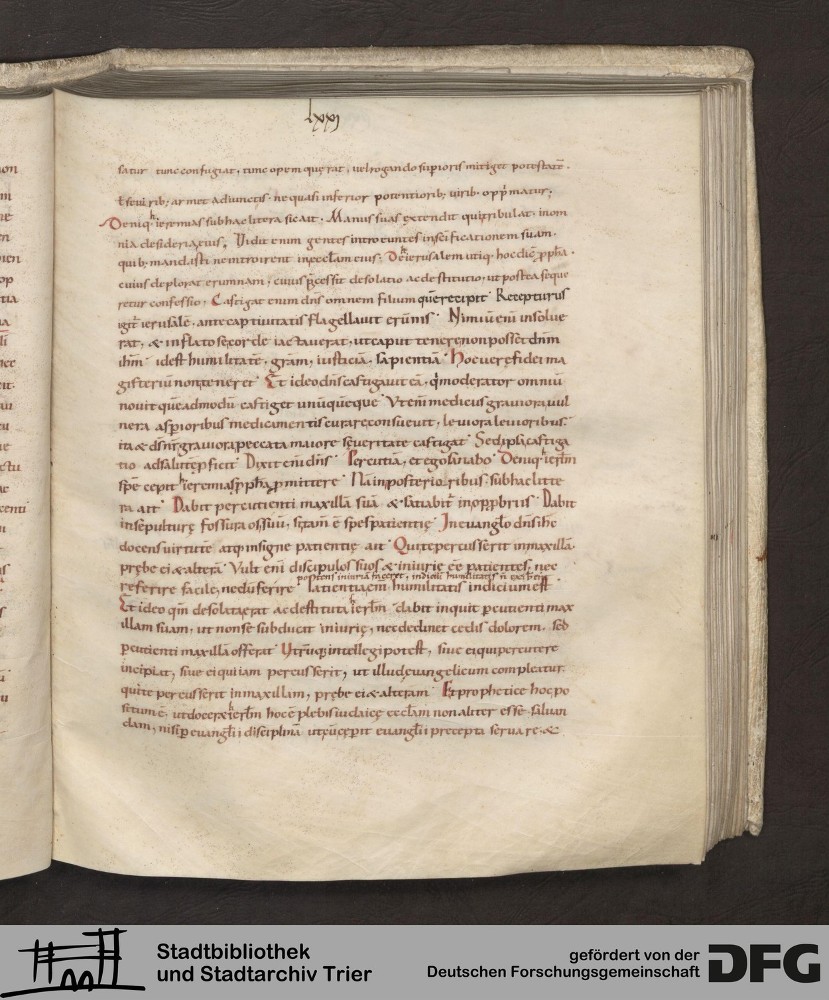 lxxi
satur tunc confugiat, tunc opem querat, vel rogando supioris mitiget potestatē.
ar met adiunctis. ne quasi inferior potentiorib; virib. opp̄matur;
Deniq; ieremias sub hac litera sic ait. Manus suas extendit qui tribulat. in om
nia desideria eius. Vidit enim gentes introeuntes in sc̄ificationem suam.
quib; mandasti ne introirent in eccl̄am eius. De ierusalem utiq; hoc dic̄ ppha.
cuius deplorat erumnam, cuius p̄cessit desolatio ac destitutio, ut postea seque
retur confessio. Castigat enim dn̄s omnem filium quē recipit. Recepturus
igit̄ ierusalē, ante captiuitatis flagellauit erūnis. Nimiū eni insolue
rat, & inflato se corde iactauerat, ut caput tenere non posset dn̄m
ih̄m. id est humilitatē, grām, iusticiā. sapientiā. Hoc uere fidei ma
gisteriū non teneret. Et ideo dn̄s castigauit eā, q̄i moderator omniū
nouit quē admodū castiget unūquēque. Ut eni medicus grauiora uul
nera asp̄ioribus medicamentis curare consueuit, leuiora leuioribus.
ita & dn̄s nr̄ grauiora peccata maiore seueritate castigat. Sed ipsa castiga
tio ad salutē pficit. Dixit eni dn̄s. Percutiā, et ego sanabo. Deniq; ierl̄m
spē cepit ieremias ppha pmittere. Nā in posterioribus sub hac litte
ra ait. Dabit percutienti maxillā suā & satiabit̄ in opprobriis. Dabit
in sepulture fossura os suū, si tam ē spes patientie. In euangl̄o dn̄s ih̄c
docens uirtutē atq; insigne patientie ait. Qui te percusserit in maxillā.
prebe ei & alterā. Vult eni discipulos suos & iniurie ēē patientes. nec
referre facile, nedū ferire. Patientia eni humilitatis indicium est.
Et ideo qm̄ desolata erat ac destituta ierl̄m dabit inquit pcutienti max
illam suam, ut non se subducat iniurie, nec declinet cedis dolorem. sed
pcutienti maxillā offerat. Utrūq; intellegi potest, siue ei qui percutere
incipiat, siue ei qui iam percusserit, ut illud euangelicum compleatur.
qui te percusserit in maxillam, prebe ei & alteram. Et prophetice hoc po
setum ē, ut docerēt ierl̄m hoc ē plebis iudaice eccl̄am non aliter esse saluan
dam, nisi p euangl̄ii disciplinā euangl̄ii precepta seruare. &
Stadtbibliothek
und Stadtarchiv Trier
gefördert von der
Deutschen Forschungsgemeinschaft
DFG